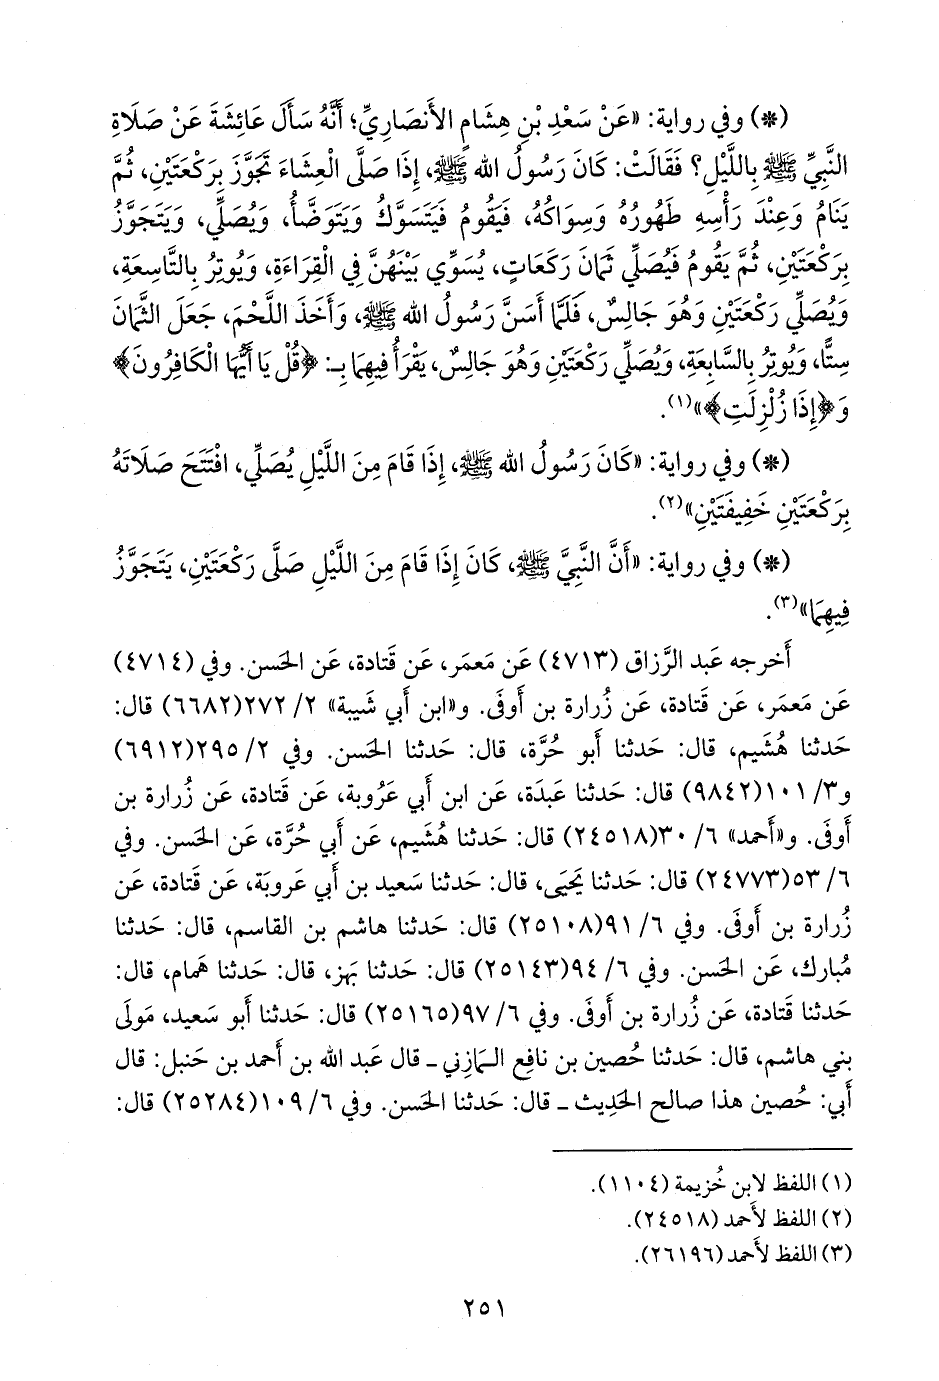 (*) وفي رواية: «عَنْ سَعْدِ بْنِ هِشَامٍ الأَنصَارِيِّ؛ أَنَّهُ سَأَلَ عَائِشَةَ عَنْ صَلَاةِ
النَّبِيِّ ﷺ بِاللَّيْلِ؟ فَقَالَتْ: كَانَ رَسُولُ الله ﷺ، إِذَا صَلَّى الْعِشَاءَ تَجَوَّزَ بِرَكْعَتَيْنِ، ثُمَّ
يَنَامُ وَعِنْدَ رَأْسِهِ طَهُورُهُ وَسِوَاكُهُ، فَيَقُومُ فَيَتَسَوَّكُ وَيَتَوَضَّأُ، وَيُصَلِّي، وَيَتَجَوَّزُ
بِرَكْعَتَيْنِ، ثُمَّ يَقُومُ فَيُصَلِّي ثَمَانَ رَكَعَاتٍ، يُسَوِّي بَيْنَهُنَّ فِي الْقِرَاءَةِ، وَيُوتِرُ بِالتَّاسِعَةِ،
وَيُصَلِّي رَكْعَتَيْنِ وَهُوَ جَالِسٌ، فَلَمَّا أَسَنَّ رَسُولُ الله ﷺ، وَأَخَذَ اللَّحْمَ، جَعَلَ الثَّمَانَ
سِتًّا، وَيُوتِرُ بِالسَّابِعَةِ، وَيُصَلِّي رَكْعَتَيْنِ وَهُوَ جَالِسٌ، يَقْرَأُ فِيهِمَا بِـ: ﴿قُلْ يَا أَيُّهَا الْكَافِرُونَ﴾
وَ﴿إِذَا زُلْزِلَتِ﴾»(١).
(*) وفي رواية: «كَانَ رَسُولُ الله ﷺ، إِذَا قَامَ مِنَ اللَّيْلِ يُصَلِّي، افْتَتَحَ صَلَاتَهُ
بِرَكْعَتَيْنِ خَفِيفَتَيْنِ»(٢).
(*) وفي رواية: «أَنَّ النَّبِيَّ ﷺ، كَانَ إِذَا قَامَ مِنَ اللَّيْلِ صَلَّى رَكْعَتَيْنِ، يَتَجَوَّزُ
فِيهِمَا»(٣).
أَخرجه عَبد الرَّزاق (٤٧١٣) عَن مَعمَر، عَن قَتادة، عَن الحَسن. وفي (٤٧١٤)
عَن مَعمَر، عَن قَتادة، عَن زُرارة بن أَوفَى. و«ابن أَبي شَيبة» ٢/ ٢٧٢(٦٦٨٢) قال:
حَدثنا هُشَيم، قال: حَدثنا أَبو حُرَّة، قال: حَدثنا الحَسن. وفي ٢/ ٢٩٥(٦٩١٢)
و٣/ ١٠١(٩٨٤٢) قال: حَدثنا عَبدَة، عَن ابن أَبي عَرُوبة، عَن قَتادة، عَن زُرارة بن
أَوفَى. و«أَحمد» ٦/ ٣٠(٢٤٥١٨) قال: حَدثنا هُشَيم، عَن أَبي حُرَّة، عَن الحَسن. وفي
٦/ ٥٣(٢٤٧٧٣) قال: حَدثنا يَحيَى، قال: حَدثنا سَعيد بن أَبي عَروبَة، عَن قَتادة، عَن
زُرارة بن أَوفَى. وفي ٦/ ٩١(٢٥١٠٨) قال: حَدثنا هاشم بن القاسم، قال: حَدثنا
مُبارك، عَن الحَسن. وفي ٦/ ٩٤(٢٥١٤٣) قال: حَدثنا بَهز، قال: حَدثنا هَمام، قال:
حَدثنا قَتادة، عَن زُرارة بن أَوفَى. وفي ٦/ ٩٧(٢٥١٦٥) قال: حَدثنا أَبو سَعيد، مَولَى
بني هاشم، قال: حَدثنا حُصين بن نافِع المازِني ـ قال عَبد الله بن أَحمد بن حَنبل: قال
أَبي: حُصين هذا صالح الحَدِيث ـ قال: حَدثنا الحَسن. وفي ٦/ ١٠٩(٢٥٢٨٤) قال:
(١) اللفظ لابن خُزيمة (١١٠٤).
(٢) اللفظ لأَحمد (٢٤٥١٨).
(٣) اللفظ لأَحمد (٢٦١٩٦).
٢٥١